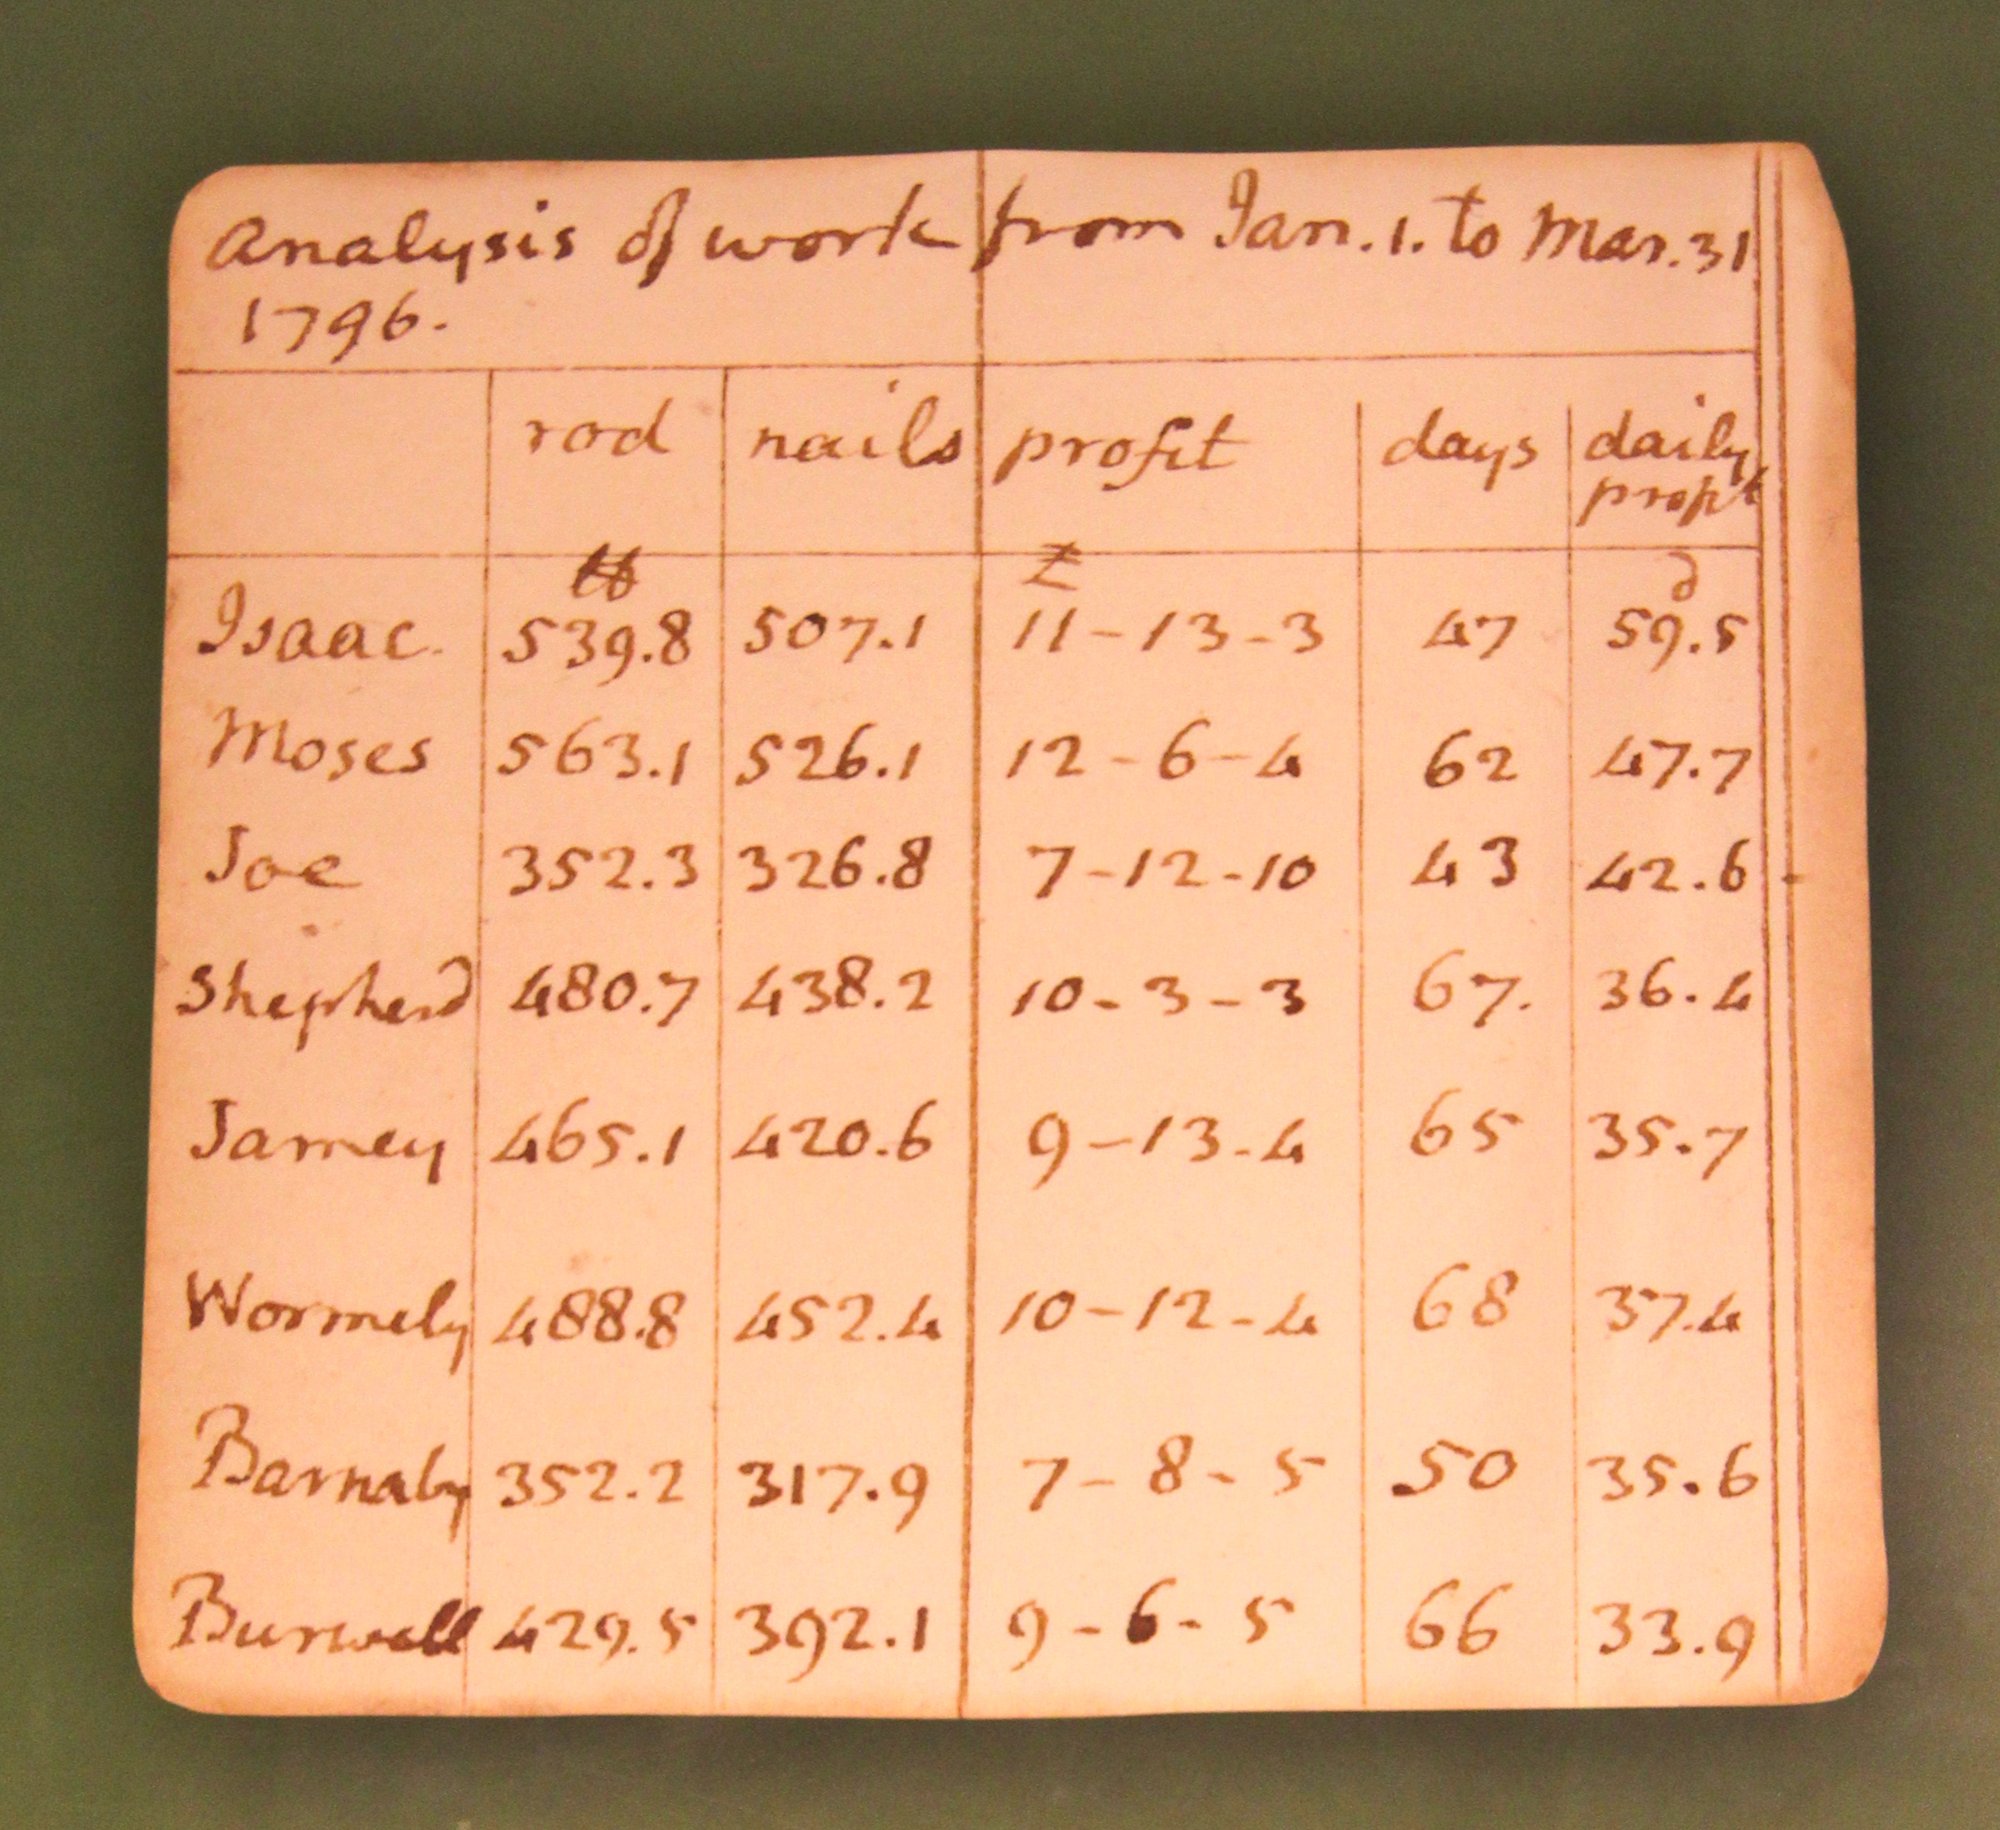 Analysis of work from Jan. 1. to Mar. 31
1796.
rod nails profit days daily
profit
℔ £ d
Isaac. 539.8 507.1 11-13-3 47 59.5
Moses 563.1 526.1 12-6-4 62 47.7
Joe 352.3 326.8 7-12-10 43 42.6
Shepherd 480.7 438.2 10-3-3 67. 36.4
Jamey 465.1 420.6 9-13-4 65 35.7
Wormely 488.8 452.4 10-12-4 68 37.4
Barnaby 352.2 317.9 7-8-5 50 35.6
Burwell 429.5 392.1 9-6-5 66 33.9